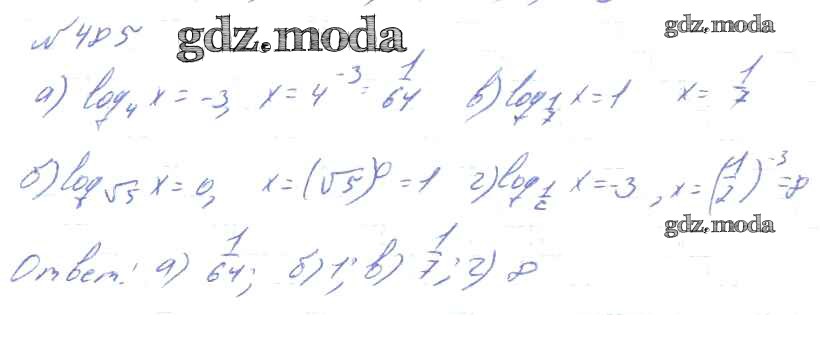 № 485 gdz.moda gdz.moda
а) log₄ x = -3, x = 4⁻³ = 1/64 в) log_{1/7} x = 1 x = 1/7
б) log_{√5} x = 0, x = (√5)⁰ = 1 г) log_{1/2} x = -3, x = (1/2)⁻³ = 8
gdz.moda
Ответ: а) 1/64; б) 1; в) 1/7; г) 8